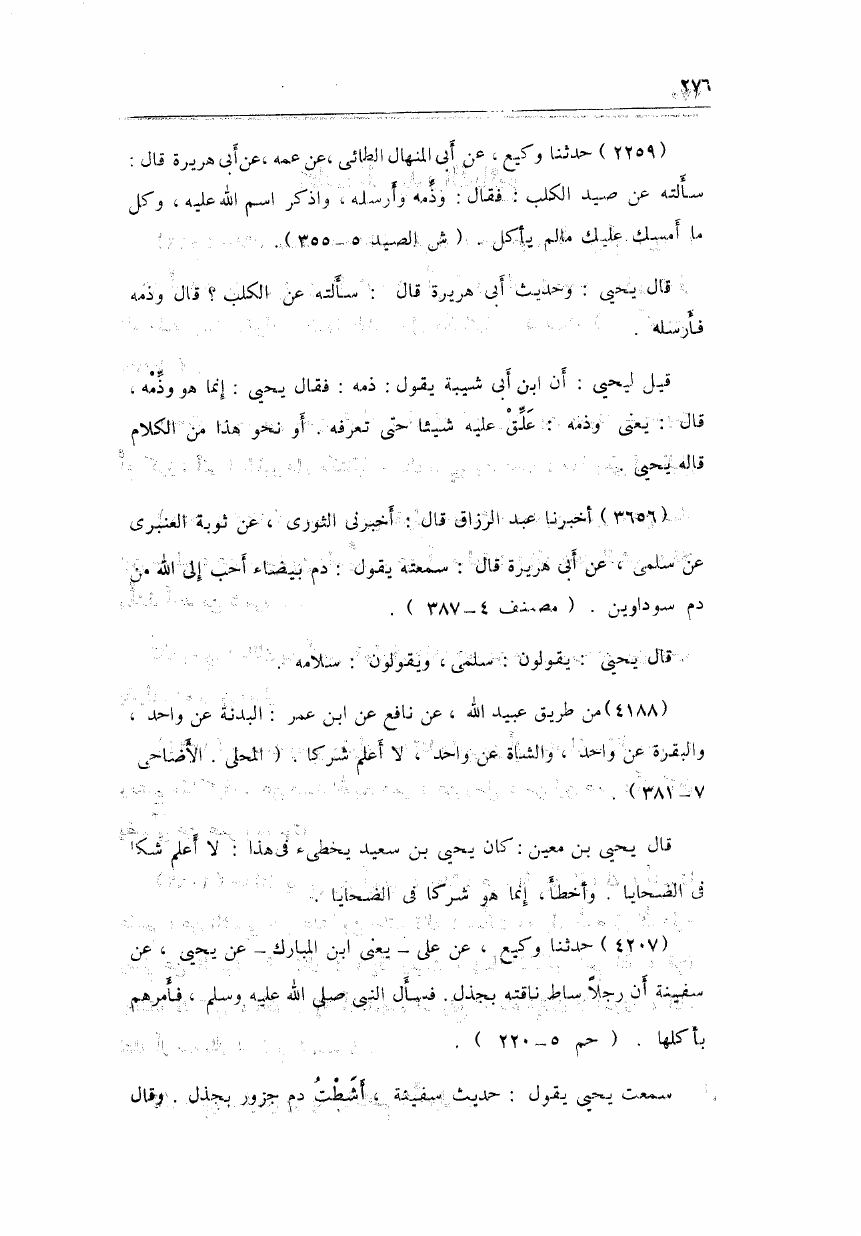 ٢٧٦
( ٢٢٥٩ ) حدثنا وكيع ، عن أبى المنهال الطائى ، عن عمه ، عن أبى هريرة قال :
سألته عن صيد الكلب : فقال : وذِّمه وأرسله ، واذكر اسم الله عليه ، وكل
ما أمسك عليك مالم يأكل . ( ش الصيد ٥ – ٣٥٥ ) .
قال يحيى : وحديث أبى هريرة قال : سألته عن الكلب ؟ قال وذمه
فأرسله .
قيل ليحيى : أن ابن أبى شيبة يقول : ذمه : فقال يحيى : إنما هو وذِّمْه ،
قال : يعنى وذمه : عَلِّقْ عليه شيئا حتى تعرفه . أو نحو هذا من الكلام
قاله يحيى .
( ٣٦٥٦ ) أخبرنا عبد الرزاق قال : أخبرنى الثورى ، عن ثوبة العنبرى
عن سلمى ، عن أبى هريرة قال : سمعته يقول : دم بيضاء أحب إلى الله من
دم سوداوين . ( مصنف ٤ – ٣٨٧ ) .
قال يحيى : يقولون : سلمى ، ويقولون : سلامه .
( ٤١٨٨ ) من طريق عبيد الله ، عن نافع عن ابن عمر : البدنة عن واحد ،
والبقرة عن واحد ، والشاة عن واحد ، لا أعلم شركا . ( المحلى . الأضاحى
٧ – ٣٨١ ) .
قال يحيى بن معين : كان يحيى بن سعيد يخطىء فى هذا : لا أعلم شكا
فى الضحايا . وأخطأ ، إنما هو شركا فى الضحايا .
( ٤٢٠٧ ) حدثنا وكيع ، عن على – يعنى ابن المبارك – عن يحيى ، عن
سفينة أن رجلاً ساط ناقته بجذل . فسأل النبى صلى الله عليه وسلم ، فأمرهم
بأكلها . ( حم ٥ – ٢٢٠ ) .
سمعت يحيى يقول : حديث سفينة ، أَشَطْتُ دم جزور بجذل . وقال